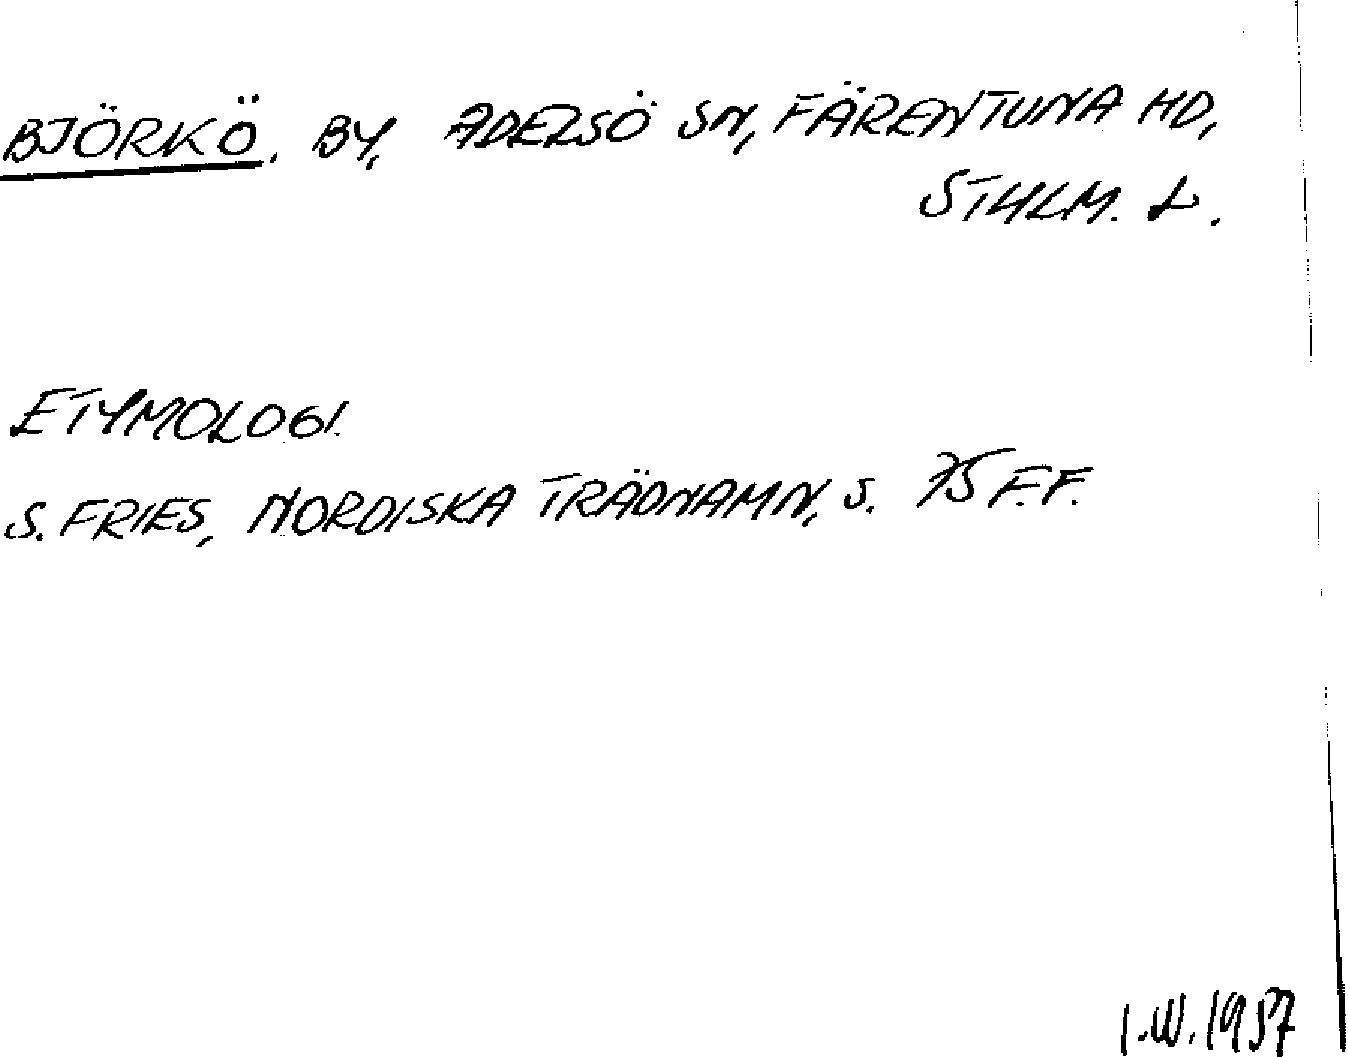 BJÖRKÖ, BY, ADELSÖ SN, FÄRENTUNA HD,
STHLM. L.
ETYMOLOGI.
S. FRIES, NORDISKA TRÄDNAMN, S. 75 F.F.
I.W. 1957